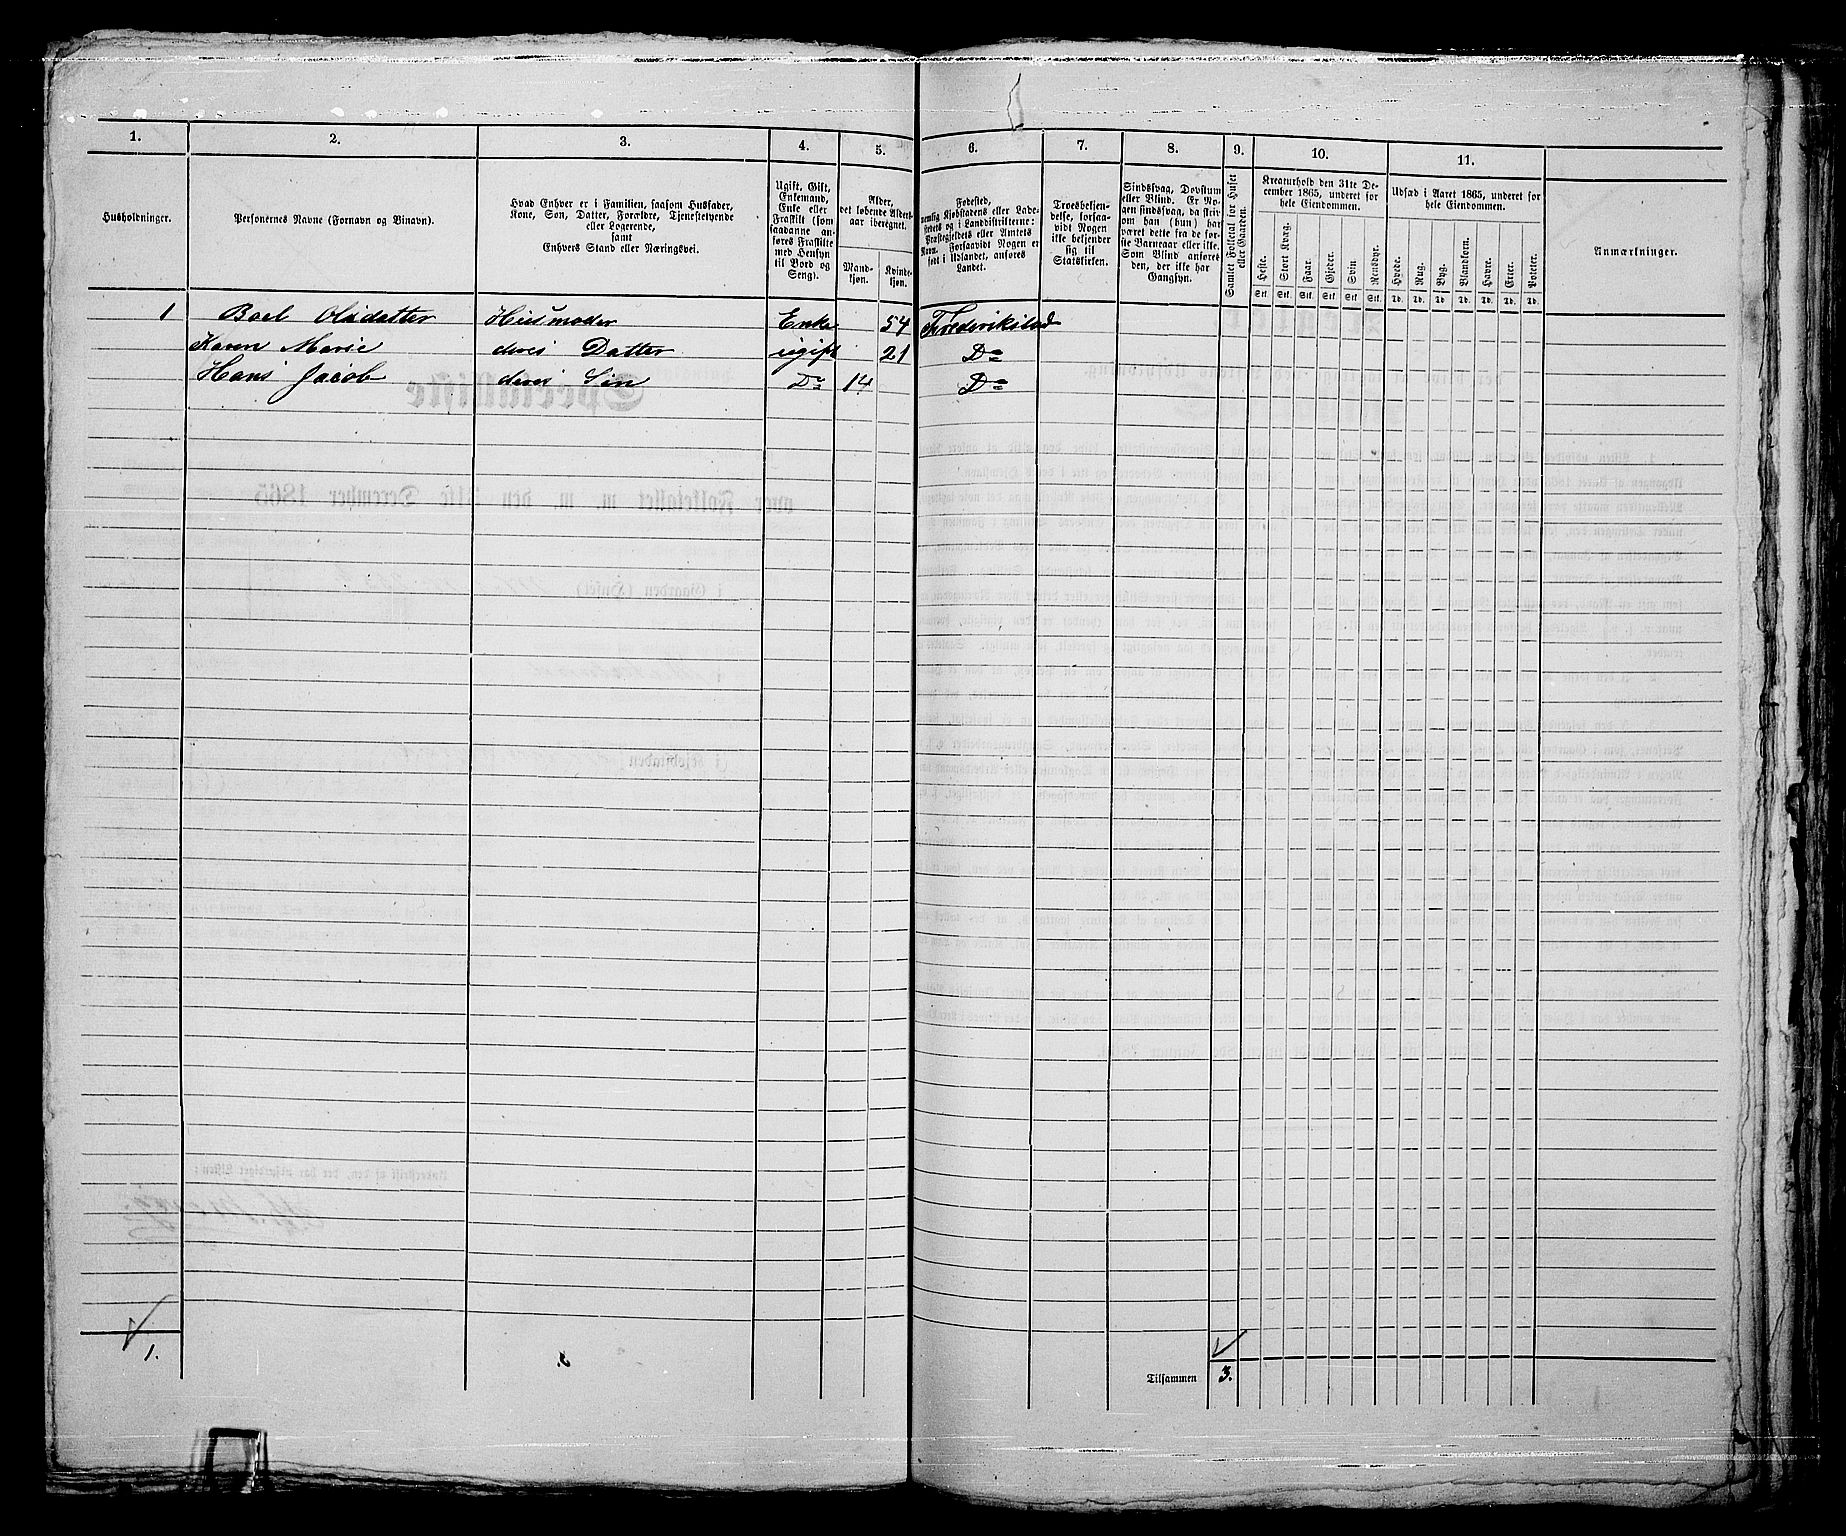 1. 2. 3. 4. 5. 6. 7. 8. 9. 10. 11.
Husholdninger.
Personernes Navne (Fornavn og Tilnavn).
Hvad Enhver er i Familien, saasom Husfader,
Kone, Søn, Datter, Forældre, Tjenestetyende
eller Logerende,
samt
Enhvers Stand eller Næringsvei.
Ugift, Gift,
Enkemand,
Enke eller
Fraskilt (som
saadanne an-
føres Fraskilte
med Hensyn
til Bord og
Seng).
Alder,
det løbende Alders-
aar iberegnet.
Mand-
kjøn.
Kvinde-
kjøn.
Fødested,
nemlig Kjøbstadens eller Lade-
stedets og i Landdistrikterne:
Præstegjeldets eller Amtets
Navn. Forsaavidt Nogen er
født i Udlandet, anføres
Landet.
Troesbekjen-
delse, forsaa-
vidt Nogen
ikke bekjender
sig til
Statskirken.
Sindssvag, Døvstum
eller Blind. Er No-
gen sindssvag, da skriv
om han (hun) har
været dette fra de før-
ste Barneaar eller ikke.
Som Blind anføres
den, der ikke har
Gangsyn.
Samlet Folketal for Huset
eller Gaarden.
Kreaturhold den 31te De-
cember 1865, underet for
hele Eiendommen.
Heste. Stort Kvæg. Faar. Gjeder. Svin. Rensdyr.
Stk. Stk. Stk. Stk. Stk. Stk.
Udsæd i Aaret 1865, underet for
hele Eiendommen.
Hvede. Rug. Byg. Blandkorn. Havre. Erter. Poteter.
Td. Td. Td. Td. Td. Td. Td.
Anmærkninger.
1 Boel Olsdatter Husmoder Enke 54 Frederikstad
Karen Marie deres Datter ugift 21 Do
Hans Jacob deres Søn Do 14 Do
1.
Tilsammen 3.